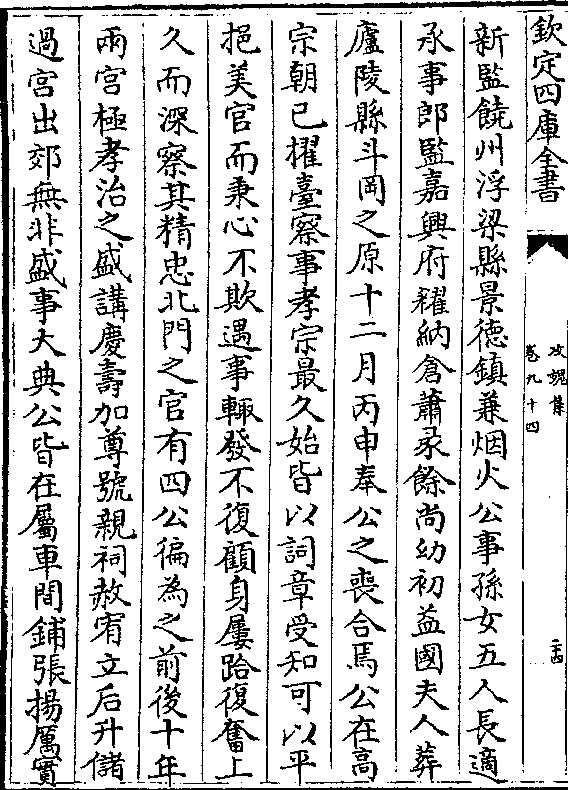 欽定四庫全書
攻媿集
卷九十四
二十四
新監饒州浮梁縣景德鎮兼烟火公事孫女五人長適
承事郎監嘉興府糴納倉蕭彔餘尚幼初益國夫人葬
廬陵縣斗岡之原十二月丙申奉公之喪合焉公在高
宗朝已擢臺察事孝宗最久始皆以詞章受知可以平
挹美官而秉心不欺遇事輙發不復顧身屢跲復奮上
久而深察其精忠北門之官有四公徧為之前後十年
兩宮極孝治之盛講慶壽加尊號親祠赦宥立后升儲
過宮出郊無非盛事大典公皆在屬車間鋪張揚厲實